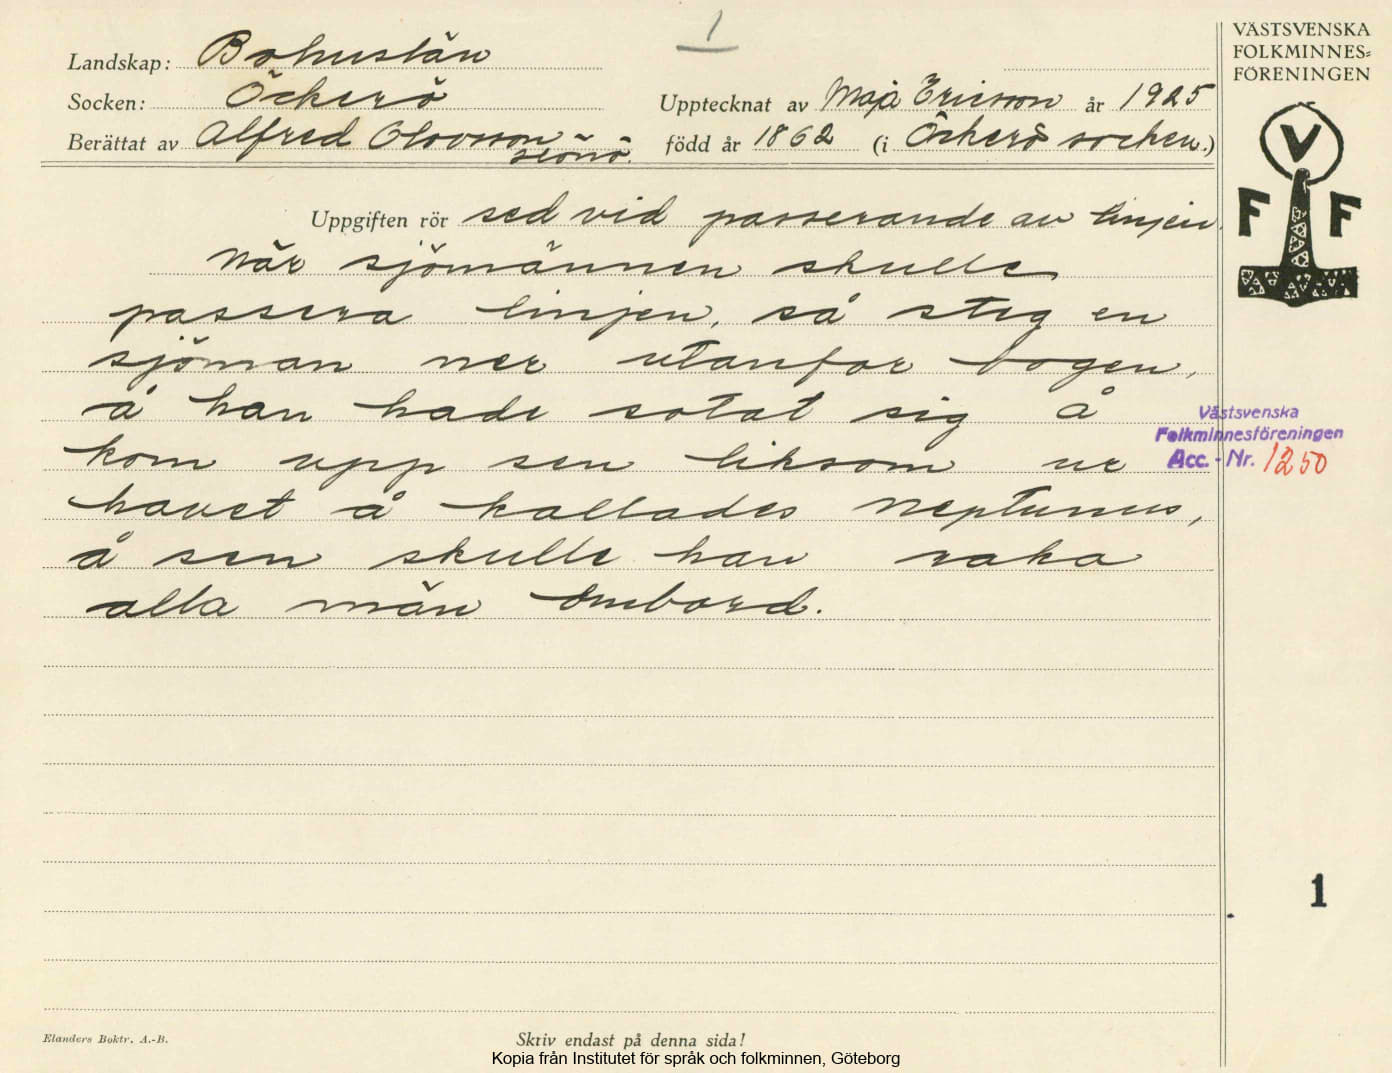 1
Landskap: Bohuslän
Socken: Öckerö
Berättat av Alfred Olovsson
Upptecknat av Maja Ericson år 1925
född år 1862 (i Öckerö socken.)
VÄSTSVENSKA
FOLKMINNES=
FÖRENINGEN
V
F F
Uppgiften rör sed vid passerande av linjen.
När sjömännen skulle
passera linjen, så steg en
sjöman ner utanför bogen,
å han hade sotat sig å
kom upp sen liksom ur
havet å kallades Neptunus,
å sen skulle han raka
alla män ombord.
Västsvenska
Folkminnesföreningen
Acc. - Nr. 1250
1
Elanders Boktr. A.-B.
Skriv endast på denna sida!
Kopia från Institutet för språk och folkminnen, Göteborg